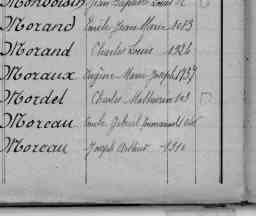 Jean Baptiste Louis
Morand Emile Jean Marie 1013
Morand Charles Louis 1926
Moraux Eugène Marie Joseph 1937
Mordel Charles Mathurin
Moreau Emile Gabriel Emmanuel
Moreau Joseph Arthur